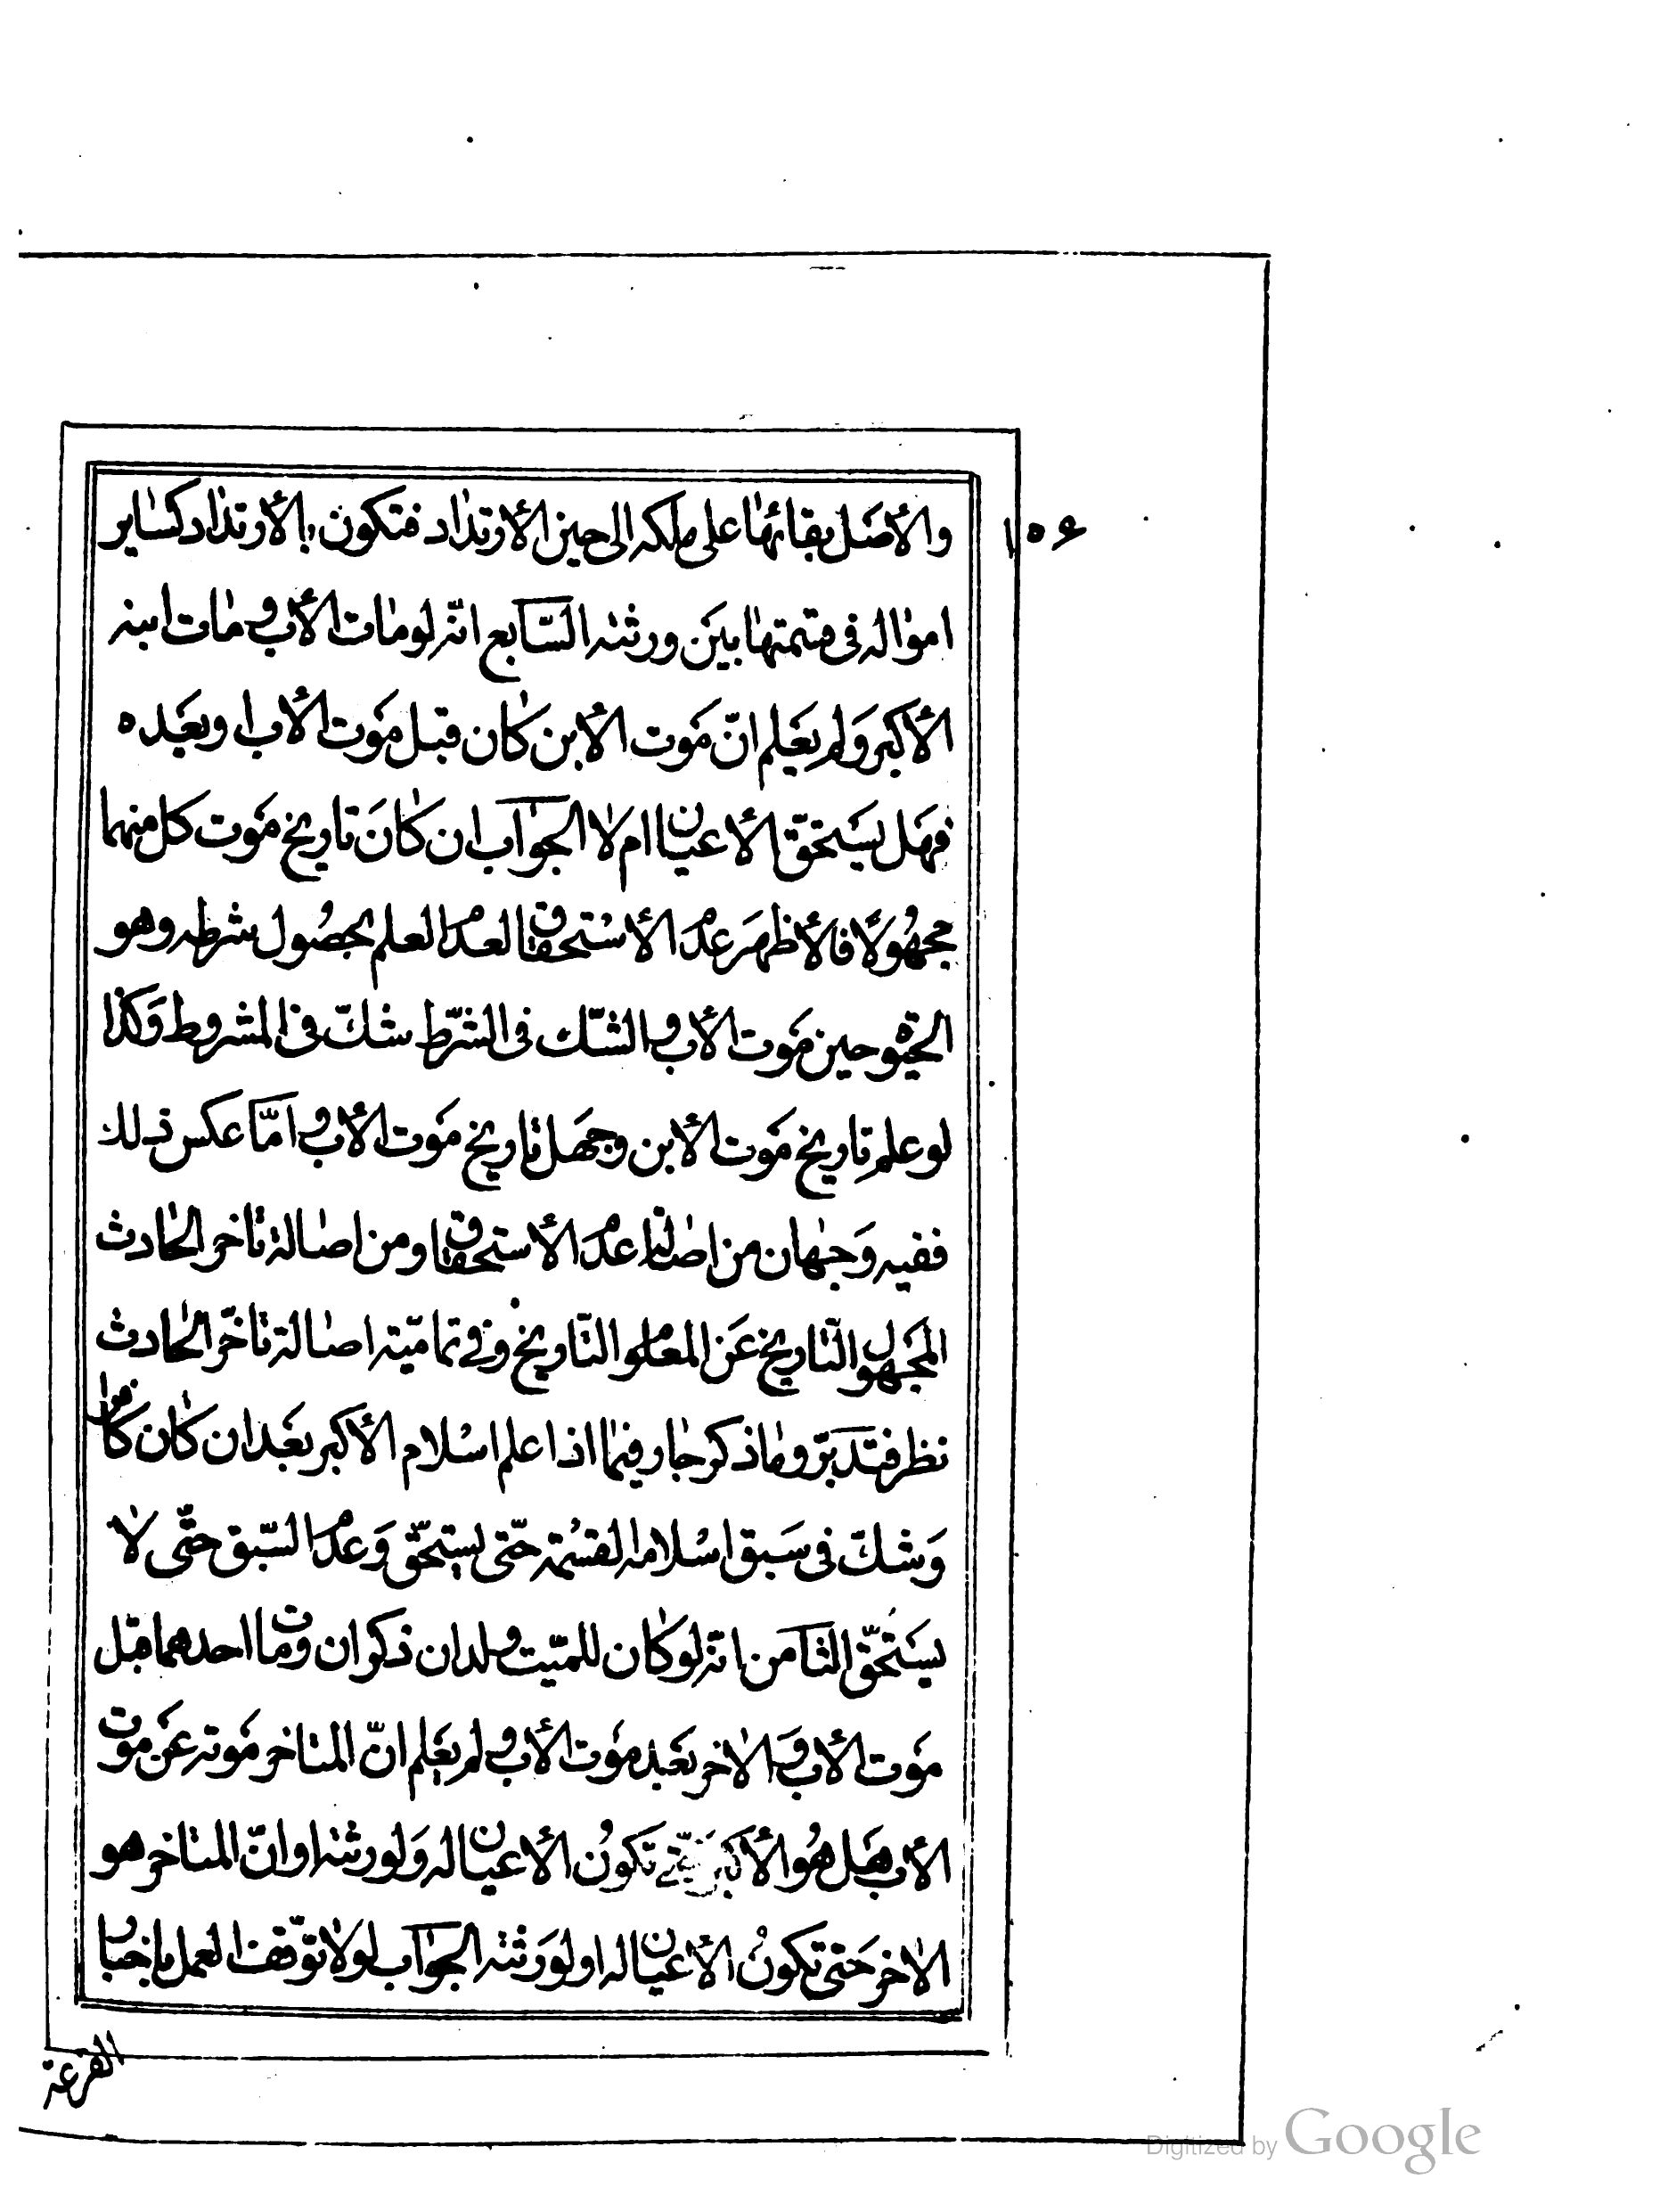 ۱۵۶
والأصل بقائها على ملكه الى حين الأرتداد فتكون بالأرتداد كساير
امواله فى قسمتها بين ورثته السّابع انّه لو مات الأب و مات ابنه
الأكبر ولم يعلم انّ موت الأبن كان قبل موت الأب او بعده
فهل يستحقّ الأعيان ام لا الجواب ان كان تاريخ موت كل منهما
مجهولًا فالأظهر عدم الأستحقاق لعدم العلم بحصول شرطه وهو
الحيوة حين موت الأب والشّك فى الشّرط شكّ فى المشروط وكذا
لو علم تاريخ موت الأبن وجهل تاريخ موت الأب و امّا عكس ذلك
ففيه وجهان من اصالة عدم الأستحقاق ومن اصالة تاخر الحادث
المجهول التّاريخ عن المعلوم التّاريخ وفى تماميّة اصالة تاخّر الحادث
نظر فتدبّر وما ذكر جار فيما اذا علم اسلام الأكبر بعد ان كان كافرا
وشكّ فى سبق اسلامه القسمة حتّى يستحقّ وعدم السّبق حتّى لا
يستحقّ الثّامن انّه لو كان للميّت ولدان ذكران ومات احدهما قبل
موت الأب و الاخر بعد موت الأب ولم يعلم انّ المتاخر موته عن موت
الأب هل هو الأكبر حتّى تكون الأعيان له ولورثته او انّ المتاخر هو
الاخر حتى تكون الأعيان له او لورثته الجواب لولا توقّف العمل باخبار
القرعة
Digitized by Google